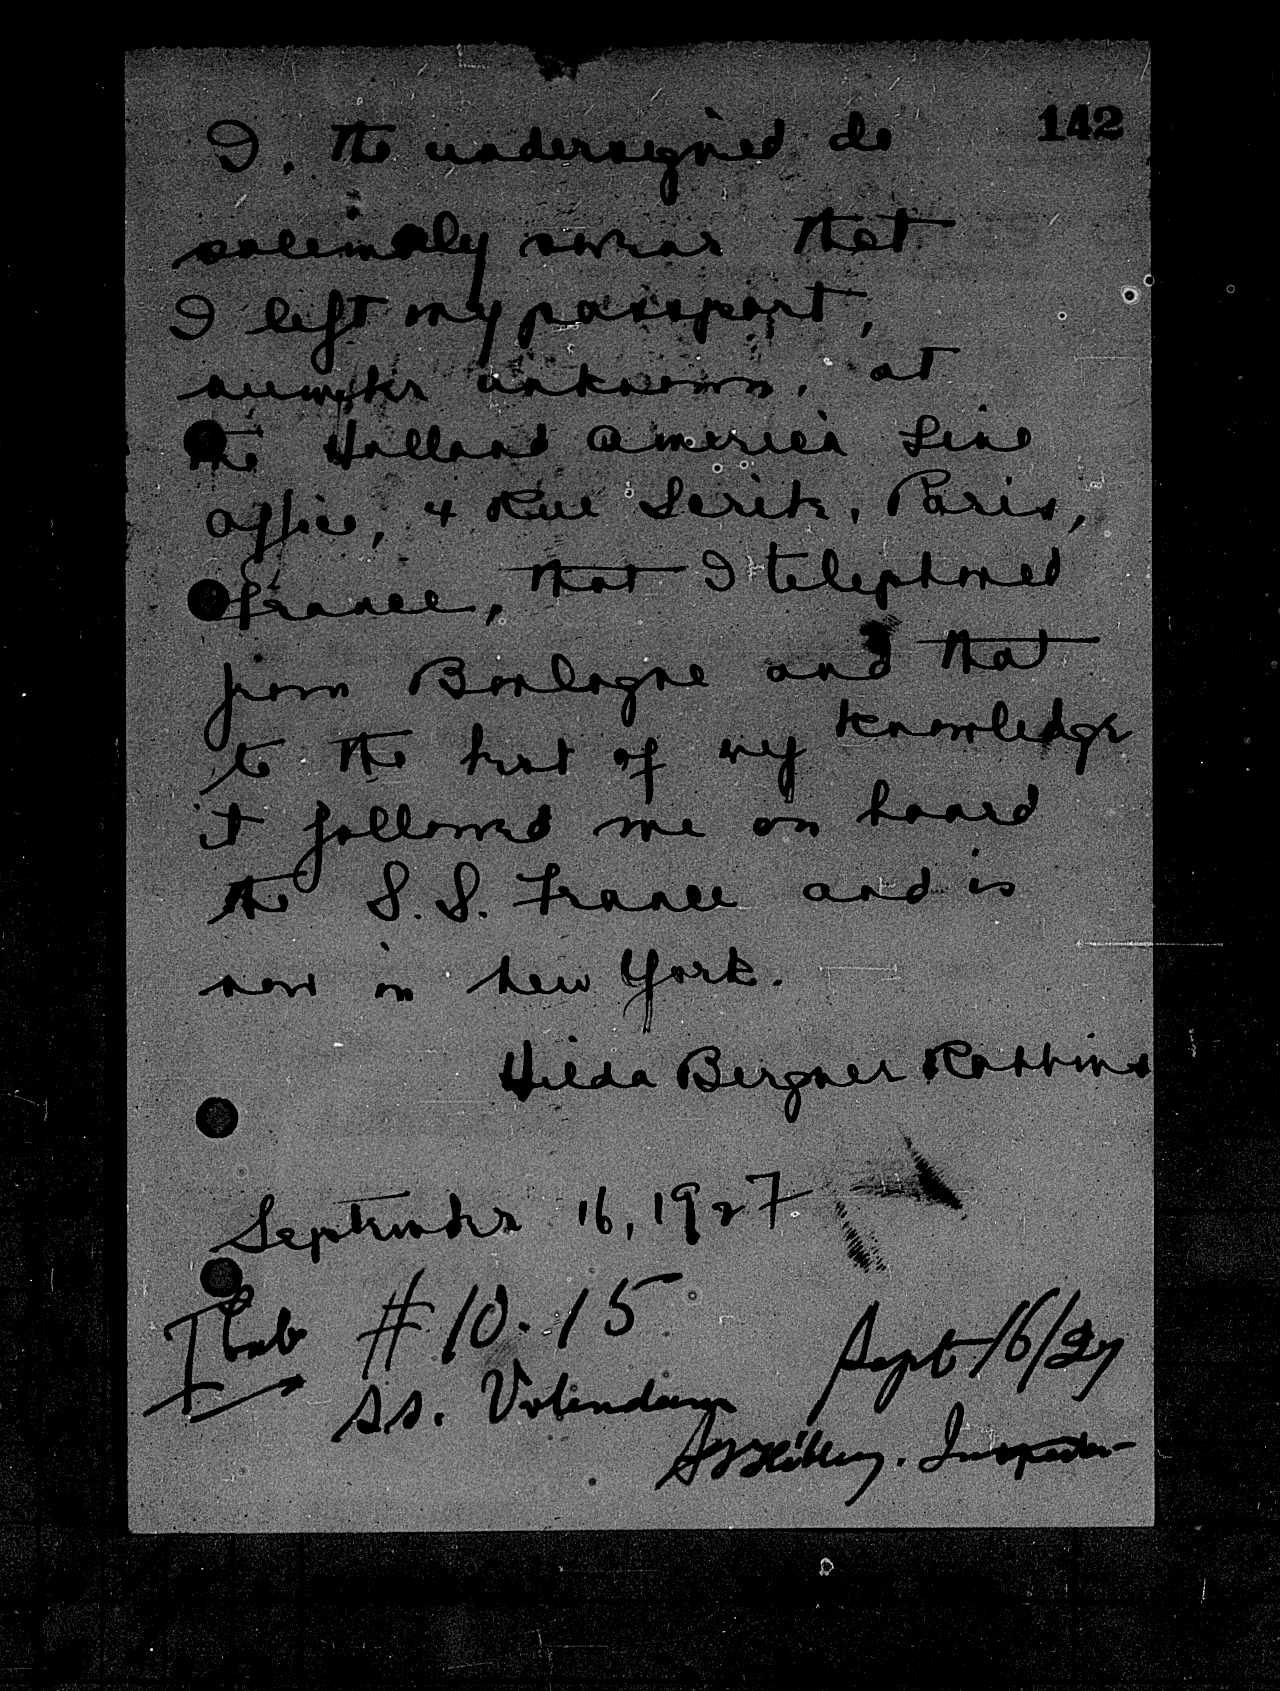 142
I, the undersigned do
solemnly swear that
I left my passport,
number unknown, at
the Holland America Line
office, 4 Rue Scribe, Paris,
France, that I telephoned
from Boulogne and that
to the best of my knowledge
it followed me on board
the S.S. France and is
now in New York.
Hilda Bergner Robbins
September 16, 1927
#10-15
Sept 16/27
SS. Volendam
Inspector